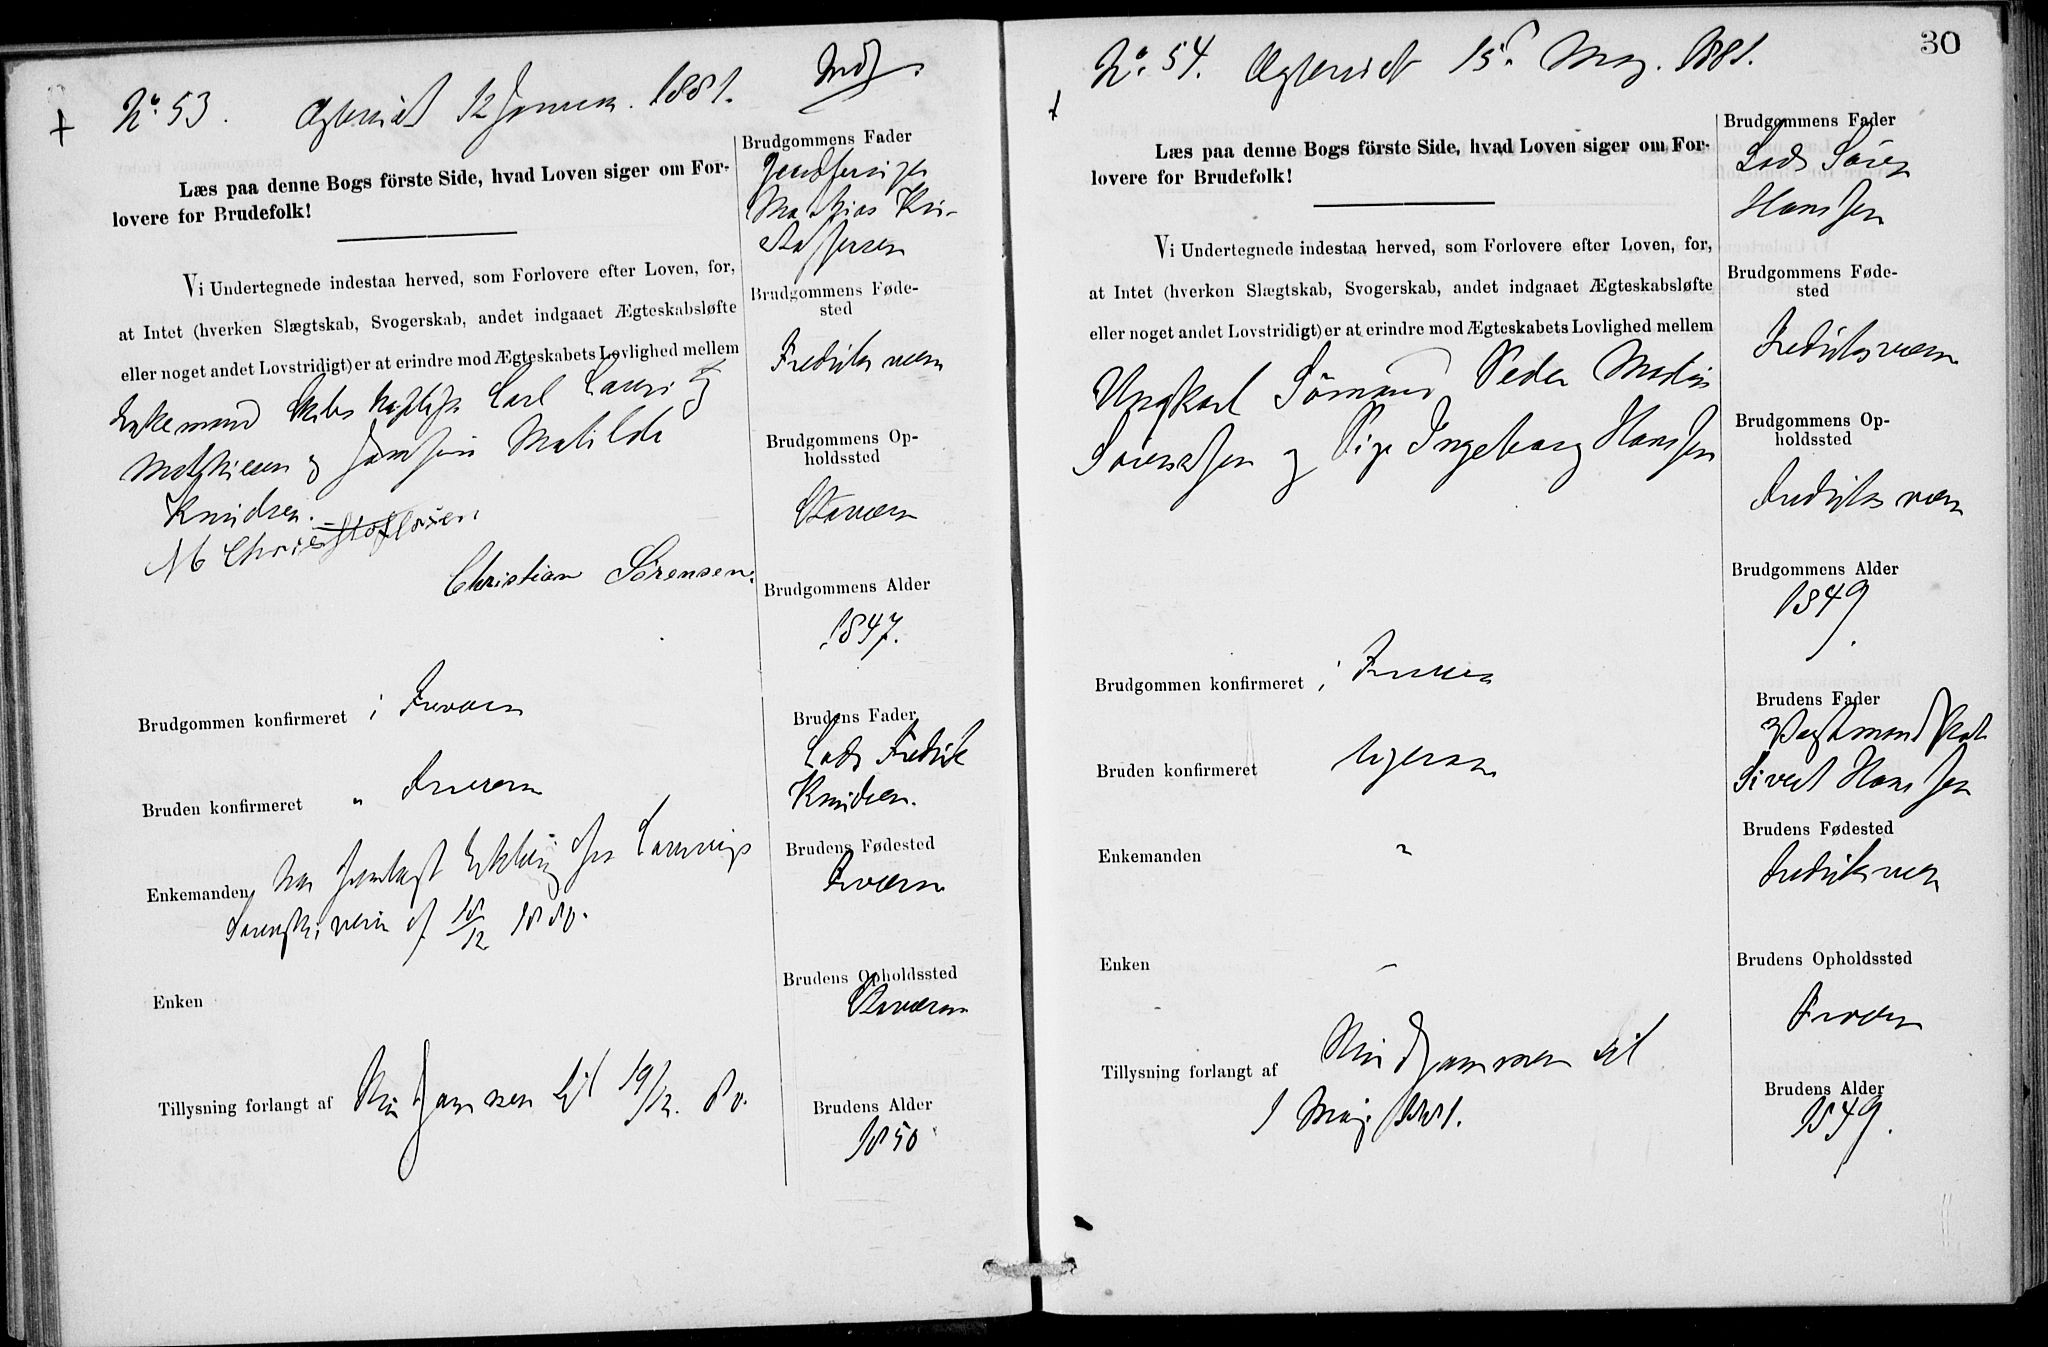 No 53. Ægteviet 12 Januar 1881.
Læs paa denne Bogs förste Side, hvad Loven siger om For-
lovere for Brudefolk!
Vi Undertegnede indestaa herved, som Forlovere efter Loven, for,
at Intet (hverken Slægtskab, Svogerskab, andet indgaaet Ægteskabsløfte
eller noget andet Lovstridigt) er at erindre mod Ægteskabets Lovlighed mellem
Enkemand Carl
Mathisen og Matilde
Knudsen.
M Christoffersen
Christian Sörensen.
Brudgommen konfirmeret i Frværn
Bruden konfirmeret " Frværn
Enkemanden har
Sorenskriveren af 18/12 1880.
Enken
Tillysning forlangt af Brudgommen til 19/12. 80.
Brudgommens Fader
Mathias Kri-
stoffersen
Brudgommens Føde-
sted
Fredriksværn
Brudgommens Op-
holdssted
Staværn
Brudgommens Alder
1847.
Brudens Fader
Lods Fredrik
Knudsen.
Brudens Fødested
Frværn
Brudens Opholdssted
Staværn
Brudens Alder
1850
30
No. 54. Ægteviet 15de Maj. 1881.
Læs paa denne Bogs förste Side, hvad Loven siger om For-
lovere for Brudefolk!
Vi Undertegnede indestaa herved, som Forlovere efter Loven, for,
at Intet (hverken Slægtskab, Svogerskab, andet indgaaet Ægteskabsløfte
eller noget andet Lovstridigt) er at erindre mod Ægteskabets Lovlighed mellem
Ungkarl Sömand Peder
Sörensen og Pige Ingeborg Hansen
Brudgommen konfirmeret i Frværn
Bruden konfirmeret ligesaa
Enkemanden "
Enken –
Tillysning forlangt af Brudgommen til
1 Maj 1881.
Brudgommens Fader
Lods Sören
Hansen
Brudgommens Føde-
sted
Fredriksværn
Brudgommens Op-
holdssted
Fredriksværn
Brudgommens Alder
1849.
Brudens Fader
Vagtmand
Sivert Hansen
Brudens Fødested
Fredriksværn
Brudens Opholdssted
Frværn
Brudens Alder
1849.